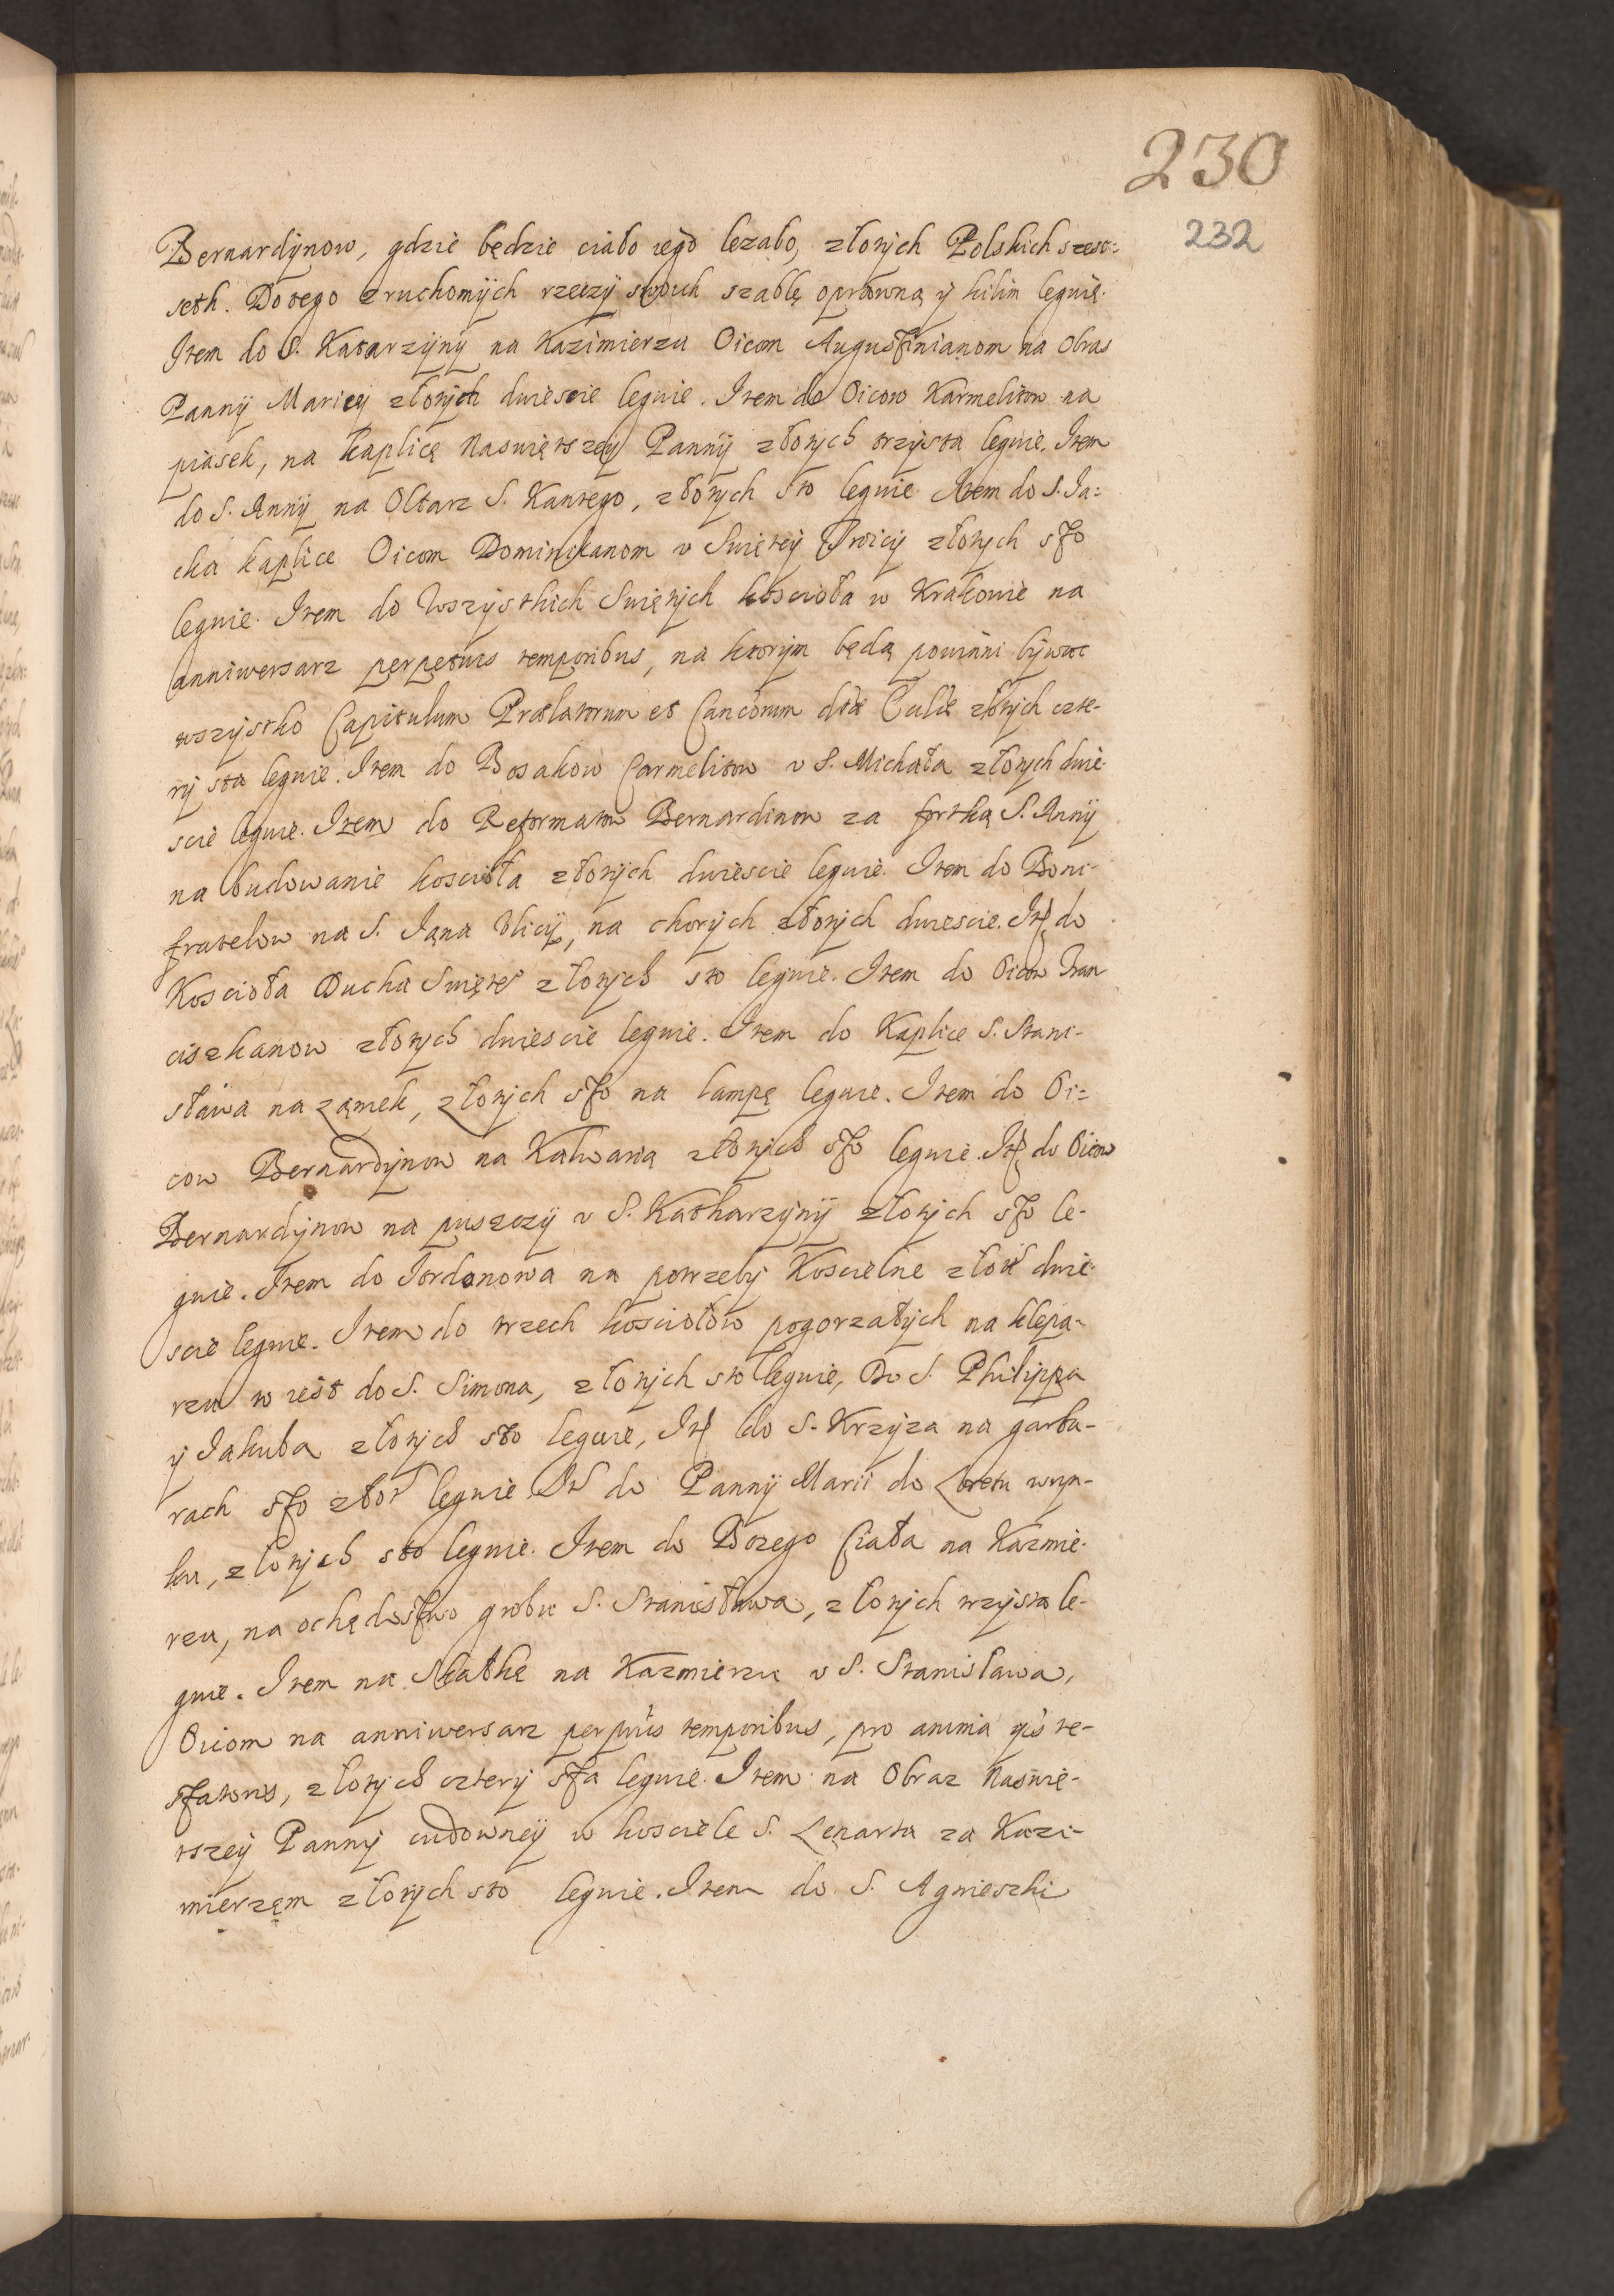 230
232
Bernardÿnow, gdzie będzie ciało iego lezało, złotych Polskich szesc=
seth. Do tego z ruchomÿch rzeczÿ swoich szablę oprawną ÿ kilim leguię.
Item do S. Katarzÿnÿ na Kazimierzu Oicom Augustinianom na Obraz
Pannÿ Mariey złotÿch dwiescie leguie. Item do Oicow Karmelitow na
piasek, na kaplicę Naswiętszey Pannÿ złotych trzysta leguie. Item
do S. Annÿ na Ołtarz S. Kantego, złotych sto leguie. Item do S. Ja=
cka kaplice Oicom Dominikanom v Swiętey Troicÿ złotych sto
leguie. Item do Wszystkich Swiętych kościoła w Krakowie na
anniwersarz perpetuis temporibus, na ktorym będą powinni bÿwac
wszÿstko Capitulum Prælatorum et Canco͂rum złotych czte-
rÿ sta leguie. Item do Bosakow Carmelitow v S. Michała złotych dwie-
scie leguie. Item do Reformatow Bernardinow za fortką S. Annÿ
na budowanie kościoła złotych dwiescie leguie. Item do Boni-
fratelow na S. Jana Vlicÿ, na chorych złotych dwiescie. Itẽ do
Koscioła Ducha Swięteº złotych sto leguie. Item do Oicow Fran
ciszkanow złotych dwiescie leguie. Item do Kaplice S. Stani-
sława na zamek, złotych sto na lampę leguie. Item do Oi=
cow Bernardÿnow na Kalwarią złotych sto leguie. Itẽ do Oicow
Bernardÿnow na puszczÿ v S. Katharzynÿ złotych sto le-
guie. Item do Jordanowa na potrzebÿ Koscielne złot dwie-
scie leguie. Item do trzech kosciołow pogorzałych na klepa-
rzu to iest do S. Simona, złotych sto leguie, Do S. Philippa
ÿ Jakuba złotych sto leguie, Itẽ do S. Krzÿza na garba-
rach sto złot leguie Itẽ do Pannÿ Marii do Loretu w ryn-
ku, złotych sto leguie. Item do Bozego Ciała na Kazmie-
rzu, na ochędostwo grobu S. Stanisława, złotych trzysta le-
guie. Item na Skałkę na Kazmierzu v S. Stanisława,
Oicom na anniwersarz perpuis temporibus, pro anima te-
statoris, złotych czterÿ sta leguie. Item na Obraz Naswię-
tszeÿ Pannÿ cudowneÿ w kosciele S. Lenarta za Kazi-
mierzem złotych sto leguie. Item do S. Agnieszki